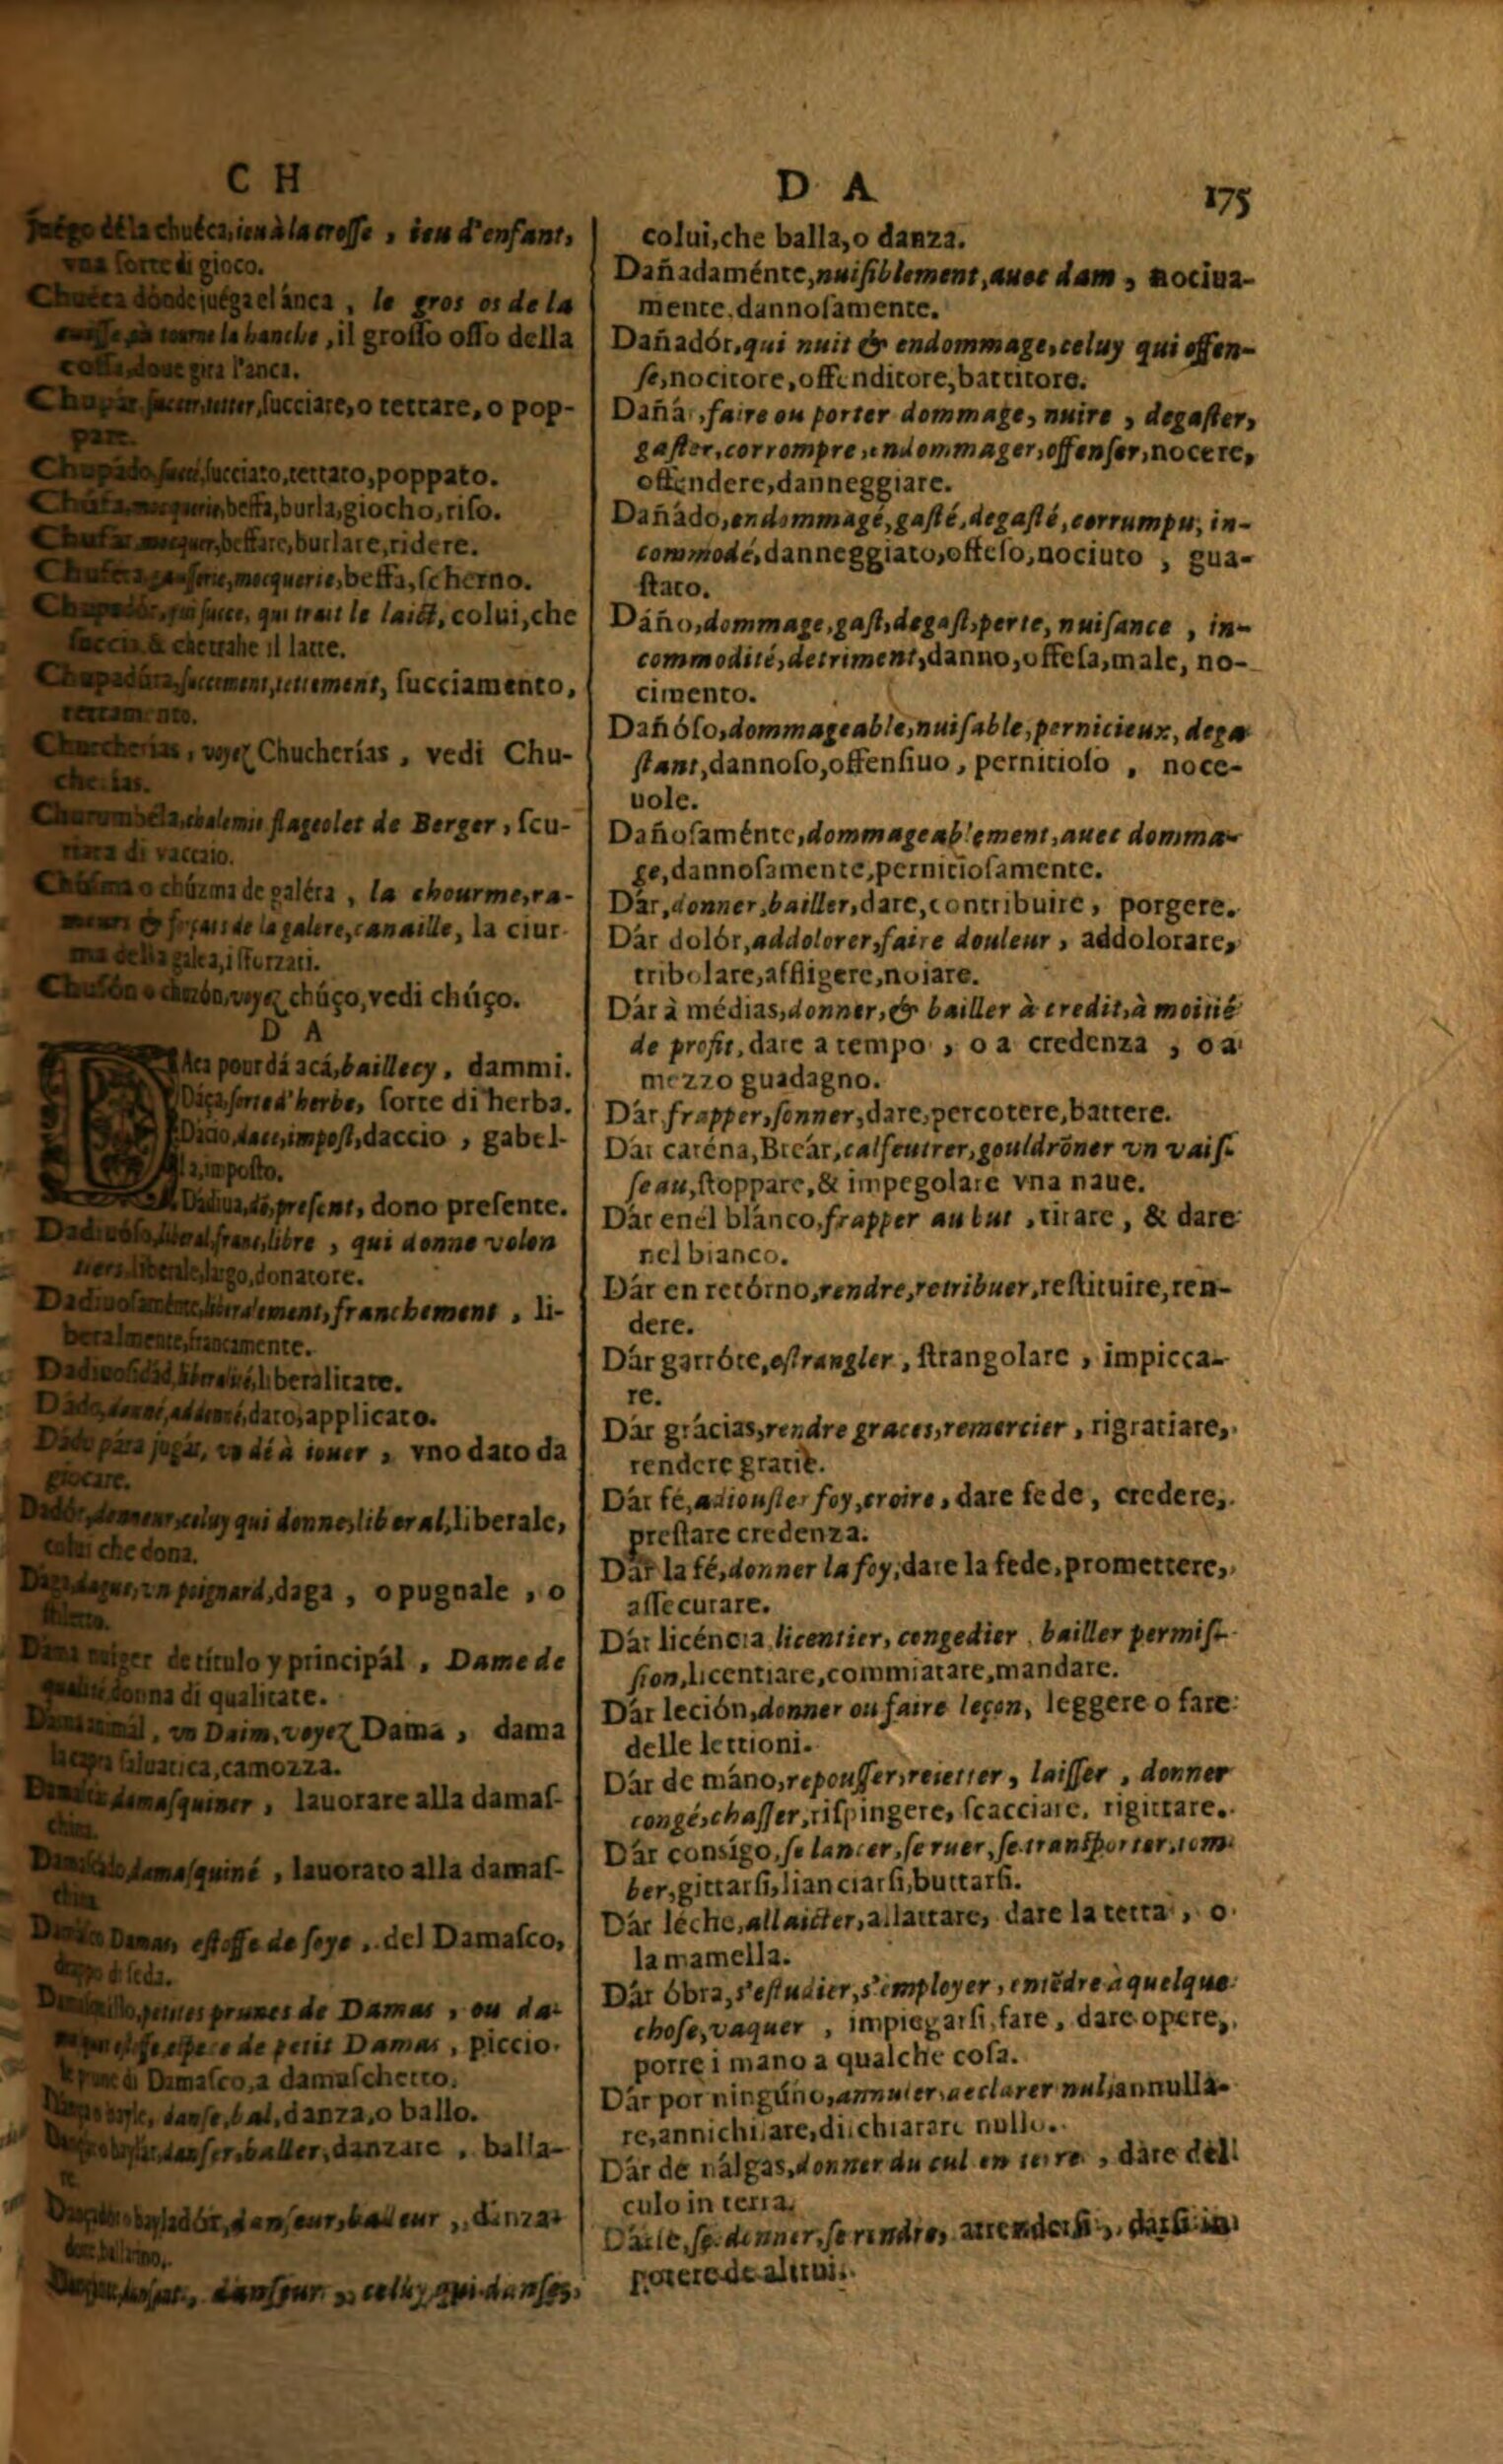 C H
Juégo de la chuéca, ieu à la crosse, ieu d'enfant,
vna sorte di gioco.
Chuéca dónde juéga el ánca, le gros os de la
la hanche, il grosso osso della
coscia, doue gira l'anca.
Chupár, succer, tetter, succiare, o tettare, o pop-
pare.
Chupádo, succé, succiato, tettato, poppato.
Chúfa, mocquerie, beffa, burla, giocho, riso.
Chufár, mocquer, beffare, burlare, ridere.
mocquerie, beffa, scherno.
Chupadór, qui succe, qui trait le laict, colui, che
succia & che trahe il latte.
Chupadúra, succement, tettement, succiamento,
tettamento.
Churcherías, voyez Chucherías, vedi Chu-
cherias.
Churumbéla, chalemie flageolet de Berger, scu-
di vaccaio.
Chúsma o chúzma de galéra, la chourme, ra-
meurs & forçats de la galere, canaille, la ciur-
ma della galea, i sforzati.
Chusón o chuzón, voyez chúço, vedi chúço.
D A
DAca pour dá acá, baille cy, dammi.
Dáça, sorte d'herbe, sorte di herba.
Dacio, dace, impost, daccio, gabel-
la, imposto.
Dádiua, dõ, present, dono presente.
Dadiuóso, liberal, franc, libre, qui donne volon
tiers, liberale, largo, donatore.
Dadiuosaménte, liberalement, franchement, li-
beralmente, francamente.
Dadiuosidád, liberalité, liberalitate.
Dádo, donné, addonné, dato, applicato.
Dádo pára jugár, vn dé à iouer, vno dato da
giocare.
Dadór, donneur, celuy qui donne, liberal, liberale,
colui che dona.
Dága, dague, vn poignard, daga, o pugnale, o
stiletto.
Dáma muger de título y principál, Dame de
qualité donna di qualitate.
Dáma animál, vn Daim, voyez Dama, dama
saluatica, camozza.
damasquiner, lauorare alla damas-
china.
damasquiné, lauorato alla damas-
china
Damas, estoffe de soye, del Damasco,
drappo di seda.
petites prunes de Damas, ou da-
espece de petit Damas, piccio-
di Damasco, a damaschetto.
danse, bal, danza, o ballo.
danser, baller, danzare, balla-
re
bayladór, danseur, balleur, danza-
tore
danseur, celuy qui danse,
D A 175
colui, che balla, o danza.
Dañadaménte, nuisiblement, auec dam, nociua-
mente, dannosamente.
Dañadór, qui nuit & endommage, celuy qui offen-
se, nocitore, offenditore, battitore.
Dañár, faire ou porter dommage, nuire, degaster,
gaster, corrompre, endommager, offenser, nocere,
offendere, danneggiare.
Dañádo, endommagé, gasté, degasté, corrumpu, in-
commodé, danneggiato, offeso, nociuto, gua-
stato.
Dáño, dommage, gast, degast, perte, nuisance, in-
commodité, detriment, danno, offesa, male, no-
cimento.
Dañóso, dommageable, nuisable, pernicieux, dega
stant, dannoso, offensiuo, pernitioso, noce-
uole.
Dañosaménte, dommageablement, auec domma-
ge, dannosamente, pernitiosamente.
Dár, donner, bailler, dare, contribuire, porgere.
Dár dolór, addolorer, faire douleur, addolorare,
tribolare, affligere, noiare.
Dár à médias, donner, & bailler à credit, à moitié
de profit, dare a tempo, o a credenza, o a
mezzo guadagno.
Dár, frapper, sonner, dare, percotere, battere.
Dár caréna, Breár, calfeutrer, gouldrõner vn vais-
seau, stoppare, & impegolare vna naue.
Dár en él blánco, frapper au but, tirare, & dare
nel bianco.
Dár en retórno, rendre, retribuer, restituire, ren-
dere.
Dár garróte, estrangler, strangolare, impicca-
re.
Dár grácias, rendre graces, remercier, rigratiare,
rendere gratie.
Dár fé, adiouster foy, croire, dare fede, credere,
prestare credenza.
Dár la fé, donner la foy, dare la fede, promettere,
assecurare.
Dár licéncia, licentier, congedier, bailler permis-
sion, licentiare, commiatare, mandare.
Dár leción, donner ou faire leçon, leggere o fare
delle lettioni.
Dár de máno, repousser, reietter, laisser, donner
congé, chasser, rispingere, scacciare, rigittare.
Dár consígo, se lancer, se ruer, se transporter, tom-
ber, gittarsi, lianciarsi, buttarsi.
Dár léche, allaicter, allattare, dare la tetta, o
la mamella.
Dár óbra, s'estudier, s'employer, entẽdre à quelque
chose, vaquer, impiegarsi, fare, dare opere,
porre i mano a qualche cosa.
Dár por ningúno, annuler, declarer nul, annulla-
re, annichilare, dichiarare nullo.
Dár de nálgas, donner du cul en terre, dare dell
culo in terra.
Dárse, se donner, se rendre, arrendersi, darsi in
potere de altrui.